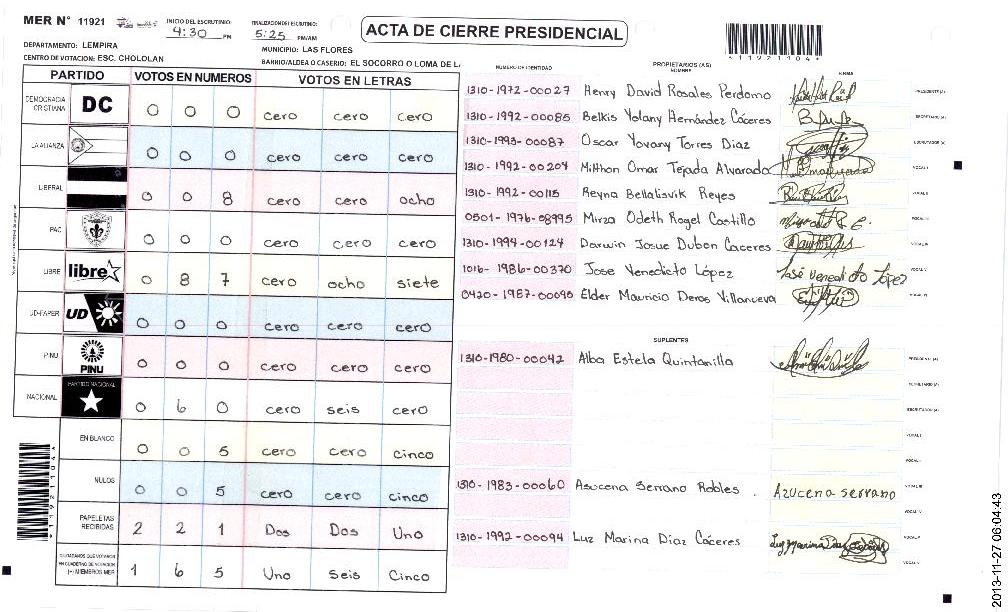 MER N° 11921
INICIO DEL ESCRUTINIO:
4:30 PM
FINALIZACION DEL ESCRUTINIO:
5:25 PM/AM
ACTA DE CIERRE PRESIDENCIAL
*11921104*
DEPARTAMENTO: LEMPIRA
MUNICIPIO: LAS FLORES
CENTRO DE VOTACION: ESC. CHOLOLAN
BARRIO/ALDEA O CASERIO: EL SOCORRO O LOMA DE L
PARTIDO VOTOS EN NUMEROS VOTOS EN LETRAS
DEMOCRACIA CRISTIANA DC 0 0 0 cero cero cero
LA ALIANZA 0 0 0 cero cero cero
LIBERAL 0 0 8 cero cero ocho
PAC 0 0 0 cero cero cero
LIBRE libre 0 8 7 cero ocho siete
UD-FAPER UD 0 0 0 cero cero cero
PINU PINU 0 0 0 cero cero cero
NACIONAL PARTIDO NACIONAL 0 6 0 cero seis cero
EN BLANCO 0 0 5 cero cero cinco
NULOS 0 0 5 cero cero cinco
PAPELETAS RECIBIDAS 2 2 1 Dos Dos Uno
CIUDADANOS QUE VOTARON EN CUADERNO DE VOTACION (+) MIEMBROS MER 1 6 5 Uno Seis Cinco
NUMERO DE IDENTIDAD PROPIETARIOS (AS) NOMBRE FIRMA
1310-1972-00027 Henry David Rosales Perdomo PRESIDENTE (A)
1310-1992-00085 Belkis Yolany Hernández Cáceres SECRETARIO (A)
1310-1993-00087 Oscar Yovany Torres Diaz ESCRUTADOR (A)
1310-1992-00204 Milthon Omar Tejada Alvarado VOCAL I
1310-1992-00115 Reyna Bellalisvik Reyes VOCAL II
0501-1976-08995 Mirza Odeth Rogel Castillo VOCAL III
1310-1994-00124 Darwin Josue Dubon Caceres VOCAL IV
1016-1986-00370 Jose Venedicto López José Venedicto López VOCAL V
0420-1987-00095 Elder Mauricio Deros Villanueva VOCAL VI
SUPLENTES
1310-1980-00042 Alba Estela Quintanilla PRESIDENTE (A)
SECRETARIO (A)
ESCRUTADOR (A)
VOCAL I
VOCAL II
1310-1983-00060 Asucena Serrano Robles . Azucena serrano VOCAL III
VOCAL IV
1310-1992-00094 Luz Marina Diaz Cáceres Luz Marina Diaz VOCAL V
*11921104*
2013-11-27 06:04:43